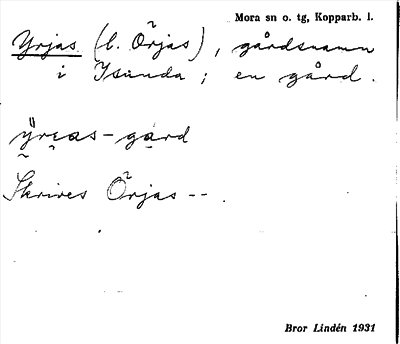 Mora sn o. tg, Kopparb. l.
Yrjas (l. Örjas), gårdsnamn
i Isunda; en gård.
ÿrɛas-gard
Skrives Örjas --.
Bror Lindén 1931